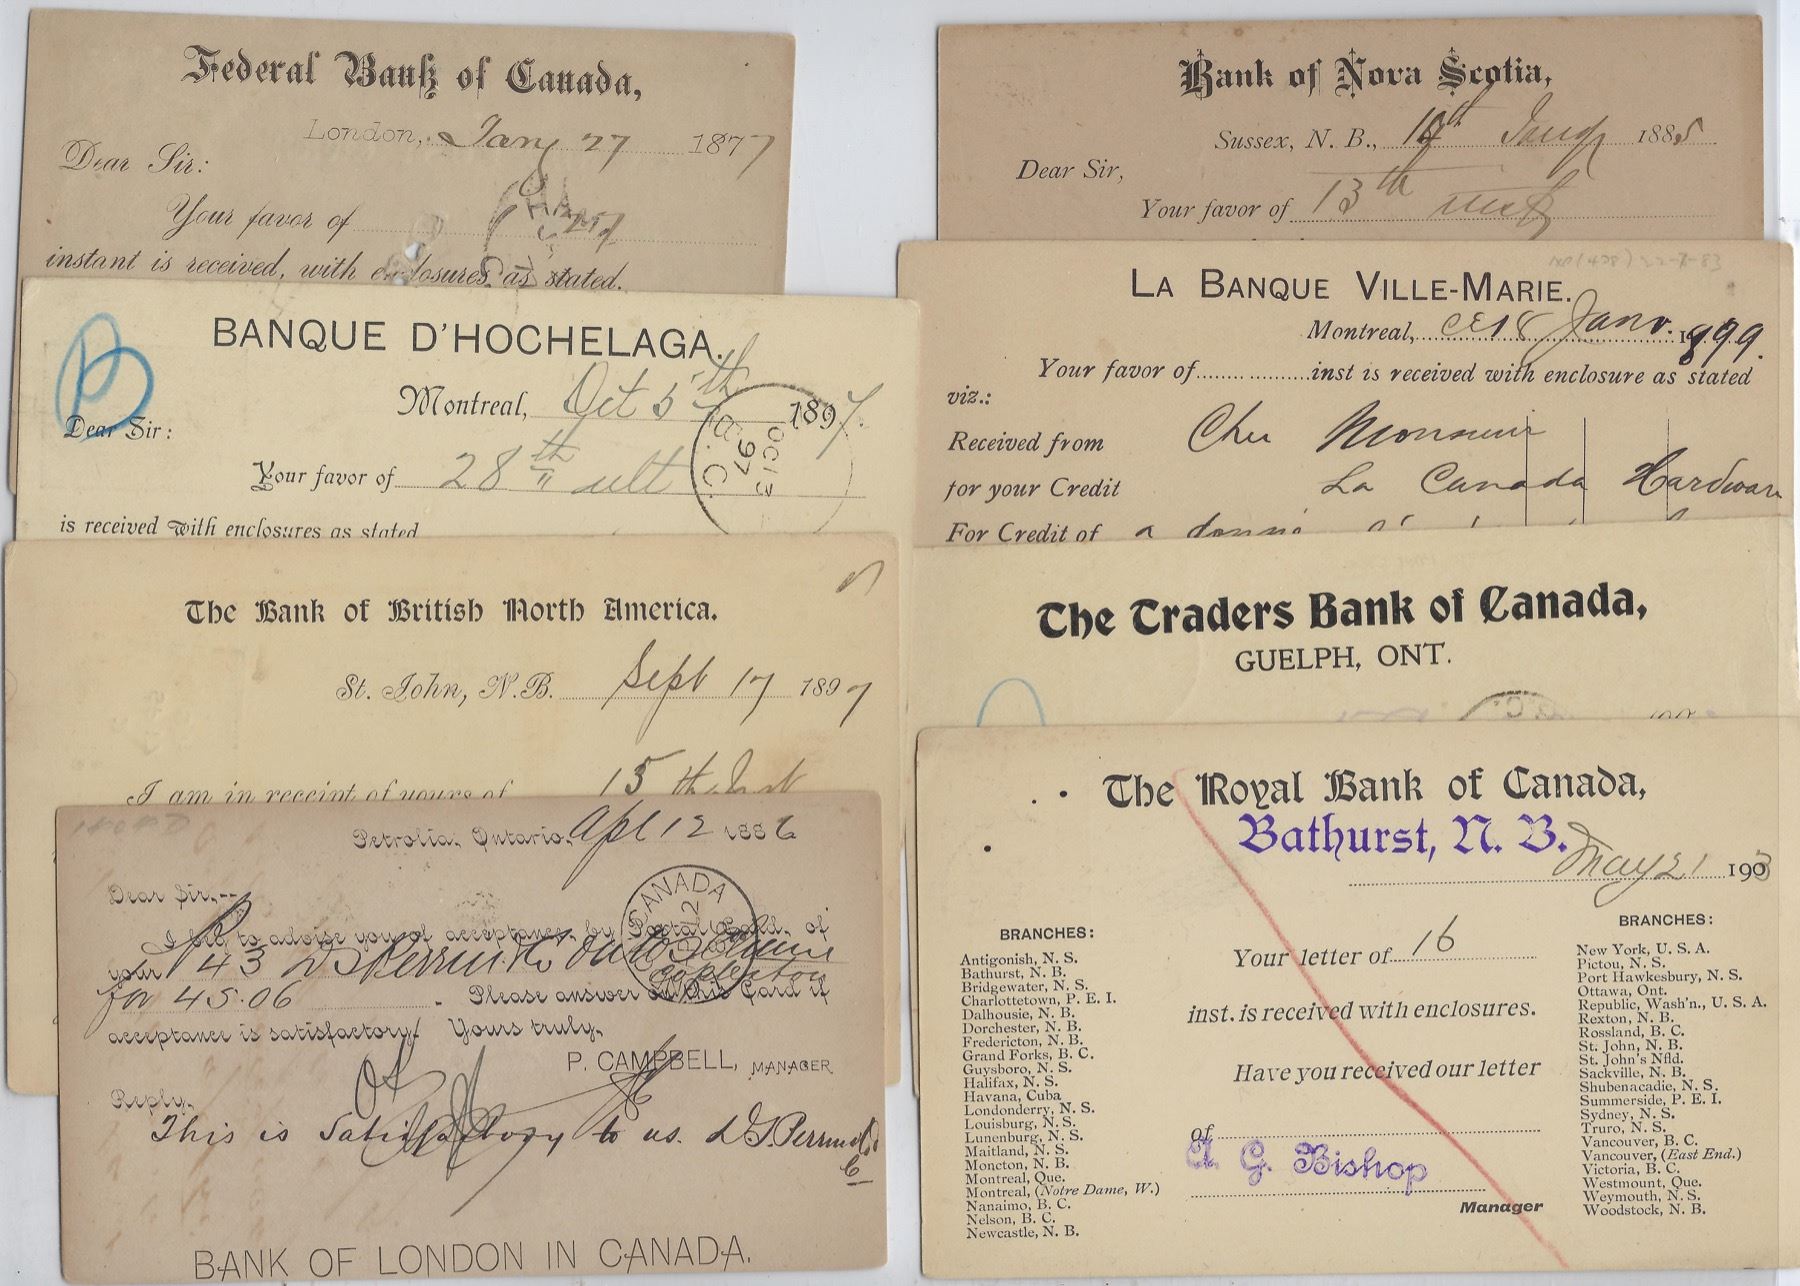 Federal Bank of Canada,
London, Jany 27 1877
Dear Sir:
Your favor of
instant is received, with enclosures as stated.
BANQUE D'HOCHELAGA.
Montreal, Oct 5th 1897.
Dear Sir:
Your favor of 28th ult
is received with enclosures as stated
OC 13
97
The Bank of British North America.
St. John, N.B. Sept 17 1897
I am in receipt of yours of 15th Inst
Petrolia, Ontario, Apl 12 1886
Dear Sir,--
I beg to advise you of acceptance, by Postal Card, of
your 43 D S Perrin & Co on
for 45.06 . Please answer on this Card if
acceptance is satisfactory. Yours truly,
CANADA
P. CAMPBELL, MANAGER
Reply,
This is satisfactory to us. D S Perrin & Co
BANK OF LONDON IN CANADA.
Bank of Nova Scotia,
Sussex, N. B., 14th Jany 1885
Dear Sir,
Your favor of 13th inst
LA BANQUE VILLE-MARIE.
Montreal, ce 18 Janv. 1899.
Your favor of inst is received with enclosure as stated
viz.:
Received from Cher Monsieur
for your Credit La Canada Hardware
For Credit of a donné
The Traders Bank of Canada,
GUELPH, ONT.
The Royal Bank of Canada,
Bathurst, N. B.
May 21 1903
BRANCHES:
Antigonish, N. S.
Bathurst, N. B.
Bridgewater, N. S.
Charlottetown, P. E. I.
Dalhousie, N. B.
Dorchester, N. B.
Fredericton, N. B.
Grand Forks, B. C.
Guysboro, N. S.
Halifax, N. S.
Havana, Cuba
Londonderry, N. S.
Louisburg, N. S.
Lunenburg, N. S.
Maitland, N. S.
Moncton, N. B.
Montreal, Que.
Montreal, (Notre Dame, W.)
Nanaimo, B. C.
Nelson, B. C.
Newcastle, N. B.
Your letter of 16
inst. is received with enclosures.
Have you received our letter
of
A. G. Bishop
Manager
BRANCHES:
New York, U. S. A.
Pictou, N. S.
Port Hawkesbury, N. S.
Ottawa, Ont.
Republic, Wash'n., U. S. A.
Rexton, N. B.
Rossland, B. C.
St. John, N. B.
St. John's Nfld.
Sackville, N. B.
Shubenacadie, N. S.
Summerside, P. E. I.
Sydney, N. S.
Truro, N. S.
Vancouver, B. C.
Vancouver, (East End.)
Victoria, B. C.
Westmount, Que.
Weymouth, N. S.
Woodstock, N. B.